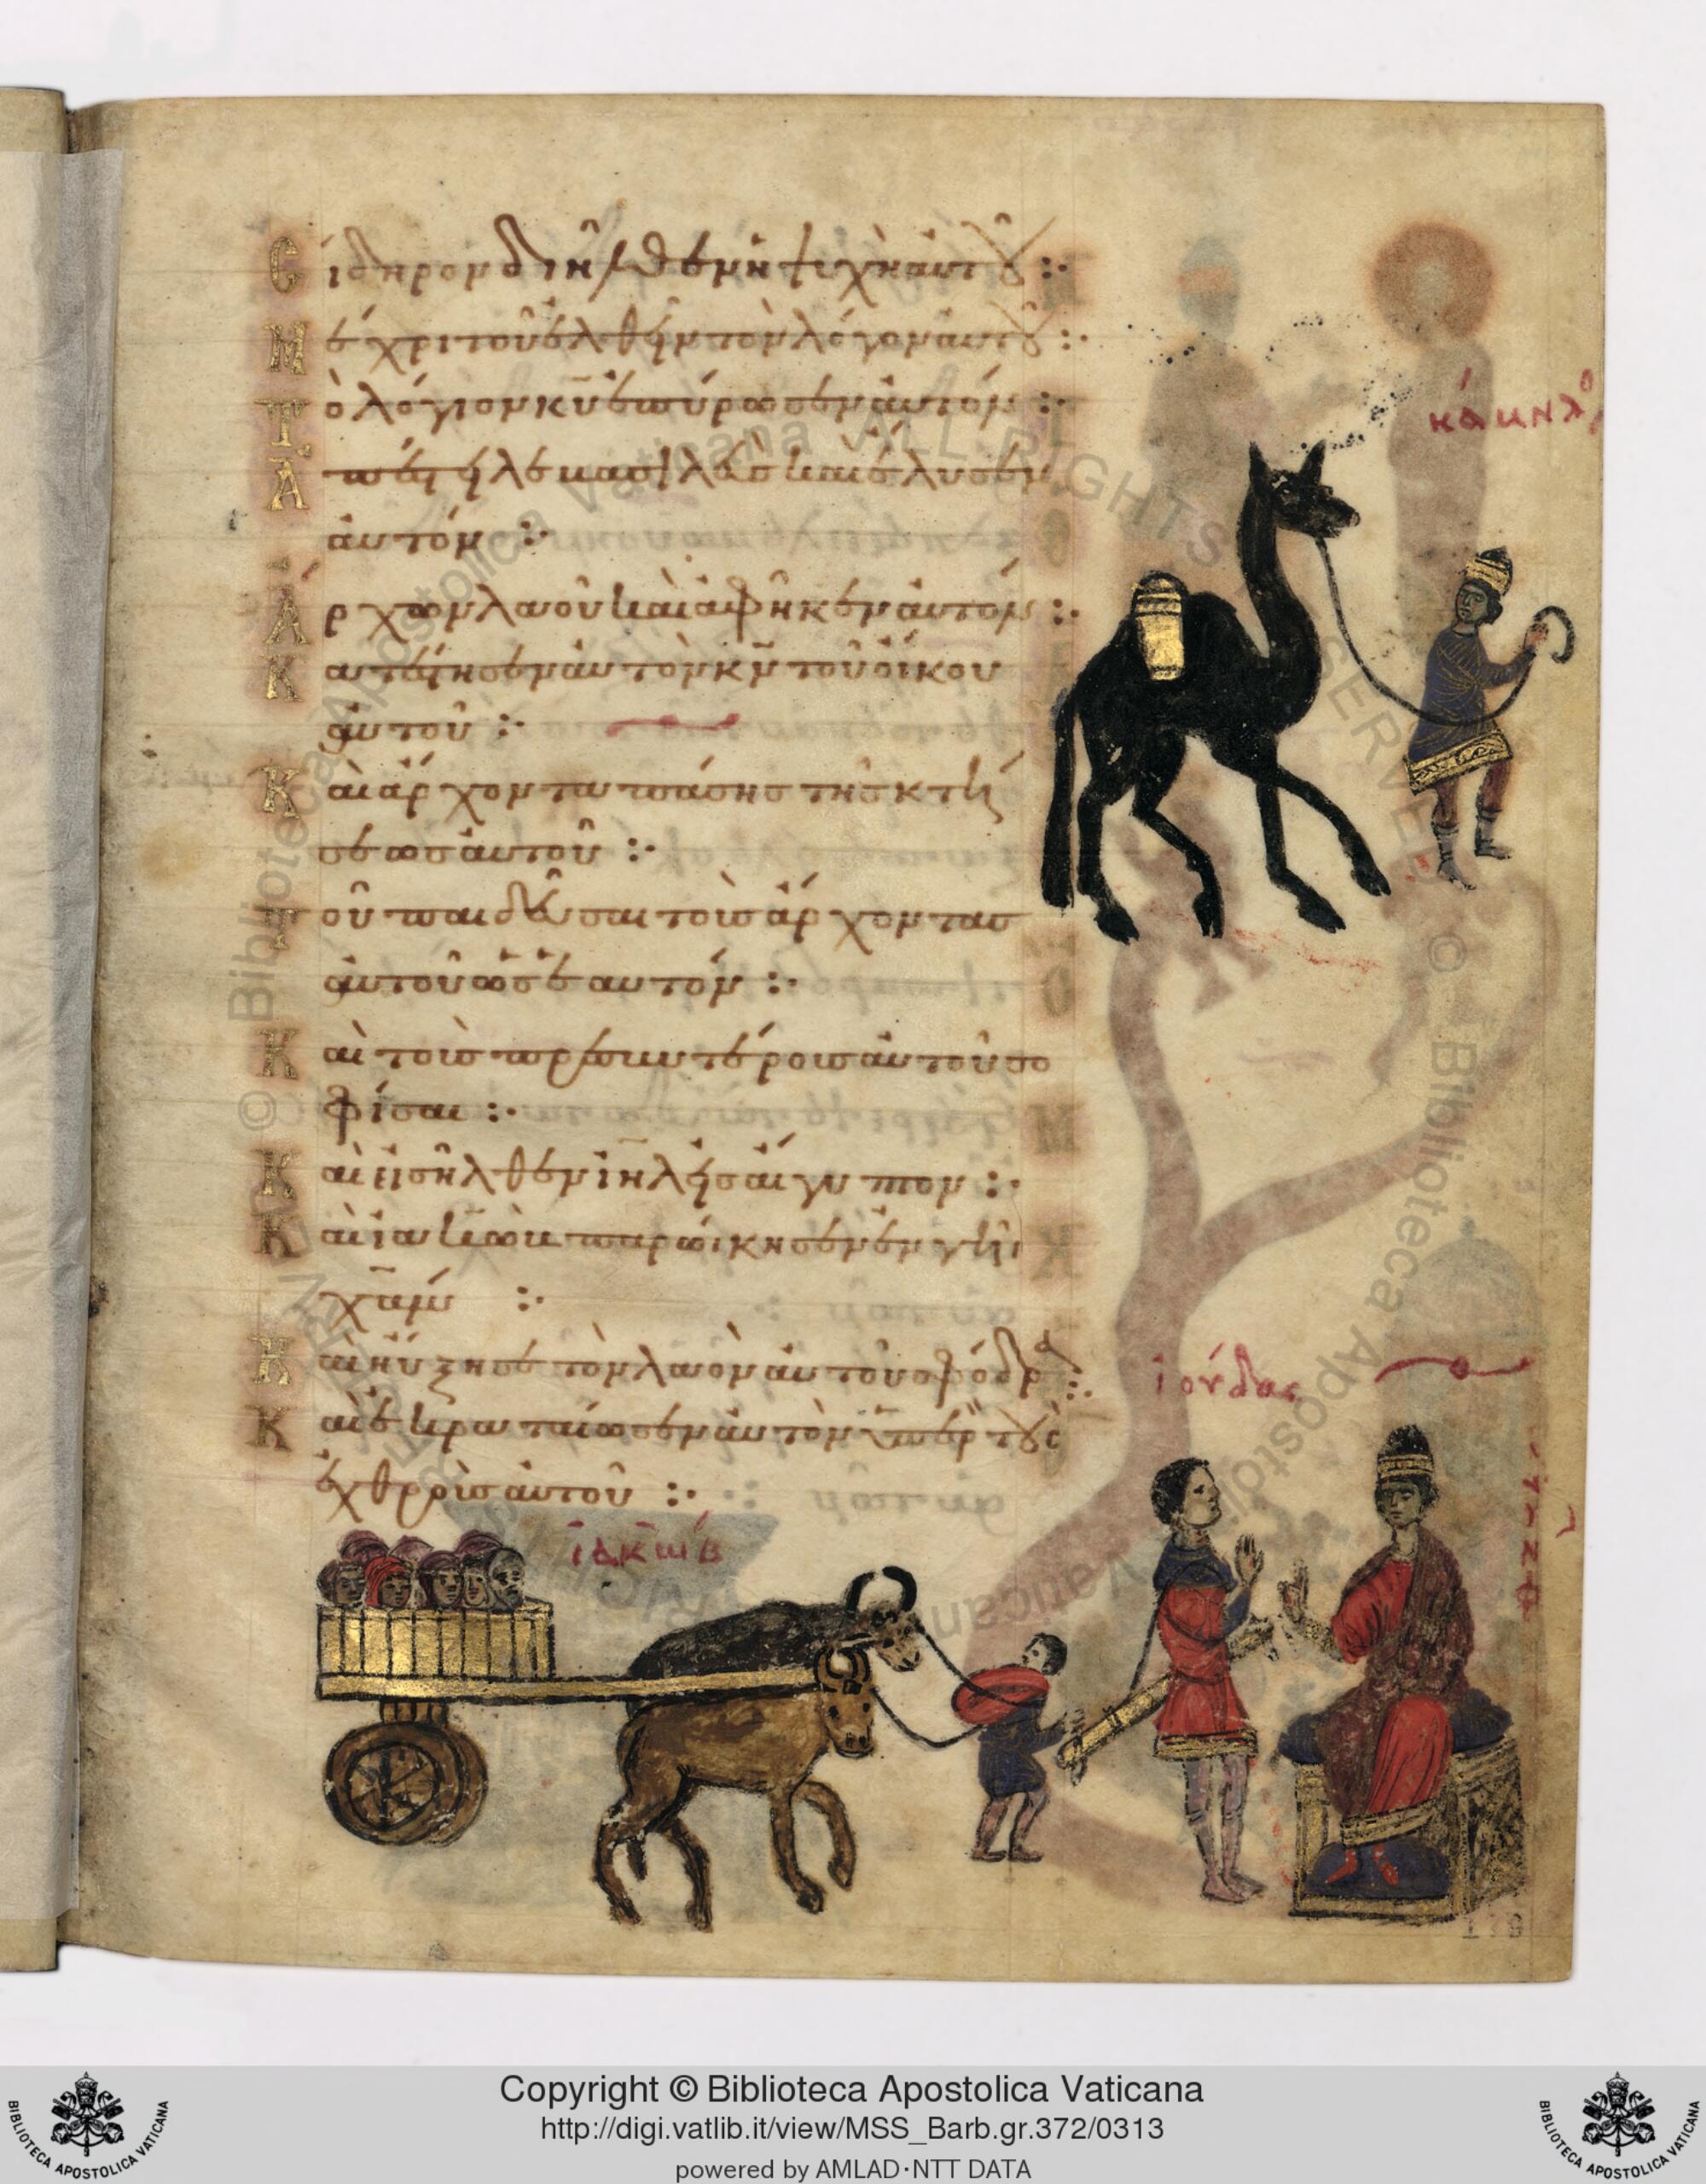 Σίδηρον διῆλθεν ἡ ψυχὴ αὐτοῦ :·
Μέχρι τοῦ ἐλθεῖν τὸν λόγον αὐτοῦ :·
Τὸ λόγιον κυ ἐπύρωσεν αὐτόν :·
Ἀπέστειλε βασιλεὺς καὶ ἔλυσεν
αὐτόν :·
Ἄρχων λαοῦ καὶ ἀφῆκεν αὐτόν :·
Κατέστησεν αὐτὸν κν τοῦ οἴκου
αὐτοῦ :·
Καὶ ἄρχοντα πάσης τῆς κτή
σεως αὐτοῦ :·
Τοῦ παιδεῦσαι τοὺς ἄρχοντας
αὐτοῦ ὡς ἑαυτόν :·
Καὶ τοὺς πρεσβυτέρους αὐτοῦ σο
φίσαι :·
Καὶ εἰσῆλθεν ιηλ εἰς αἴγυπτον :·
Καὶ ἰακὼβ παρώικησεν ἐν γῆι
χαμ :·
Καὶ ηὔξησε τὸν λαὸν αὐτοῦ σφόδρα :·
Καὶ ἐκραταίωσεν αὐτὸν ὑπὲρ τοὺς
ἐχθροὺς αὐτοῦ :·
κάμηλο
ἰούδας
ἰακὼβ
Copyright © Biblioteca Apostolica Vaticana
http://digi.vatlib.it/view/MSS_Barb.gr.372/0313
powered by AMLAD·NTT DATA
BIBLIOTECA APOSTOLICA VATICANA
BIBLIOTECA APOSTOLICA VATICANA